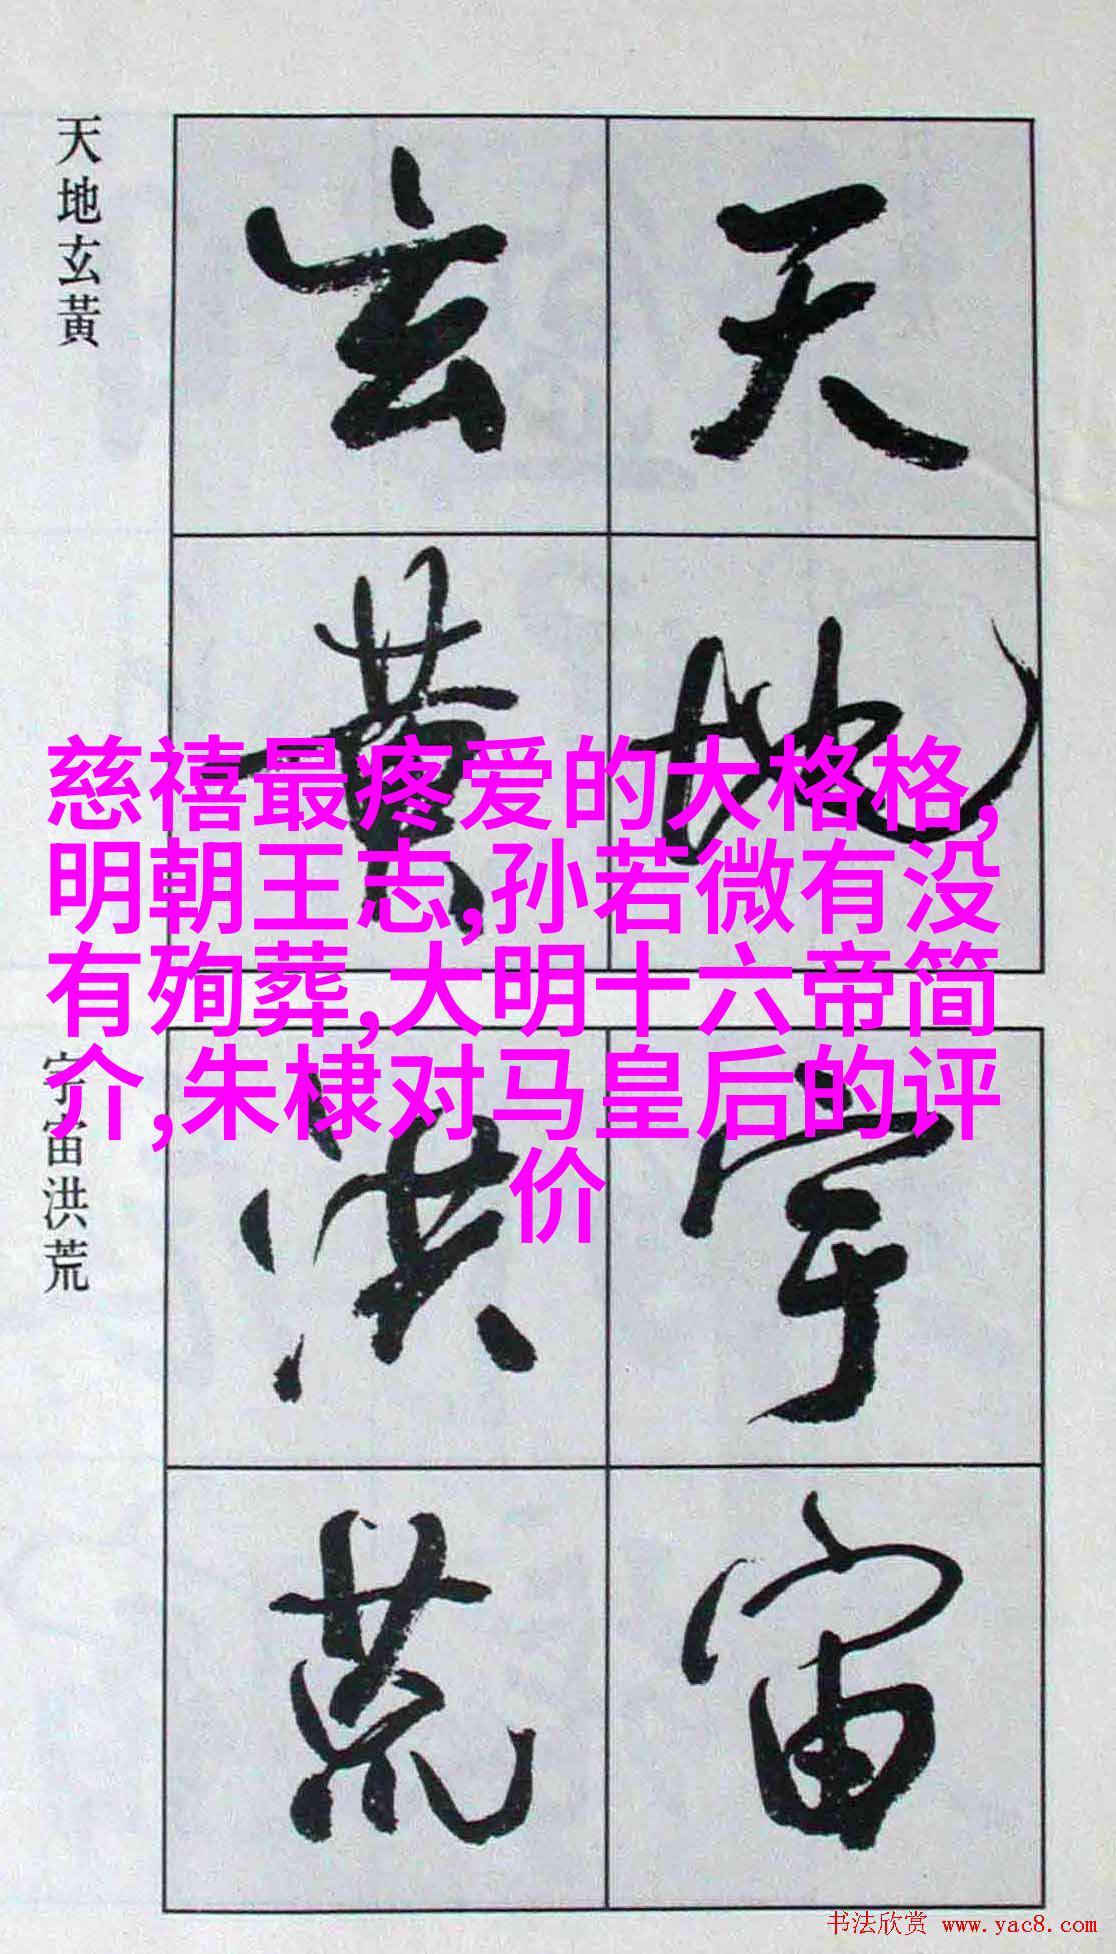 天地玄黃
天地
玄黄
慈禧最疼爱的大格格,
明朝王志,孙若微有没
有殉葬,大明十六帝简
介,朱棣对马皇后的评
价
宇宙洪荒
宇宙
洪荒
书法欣赏 www.yac8.com